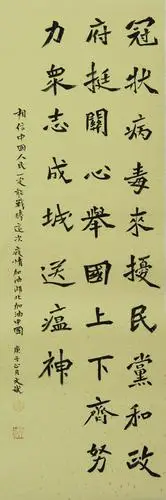 冠狀病毒來擾民黨和政
府挺關心舉國上下齊努
力衆志成城送瘟神
相信中國人民一定能戰勝這次疫情加油湖北加油中國
庚子正月文斌